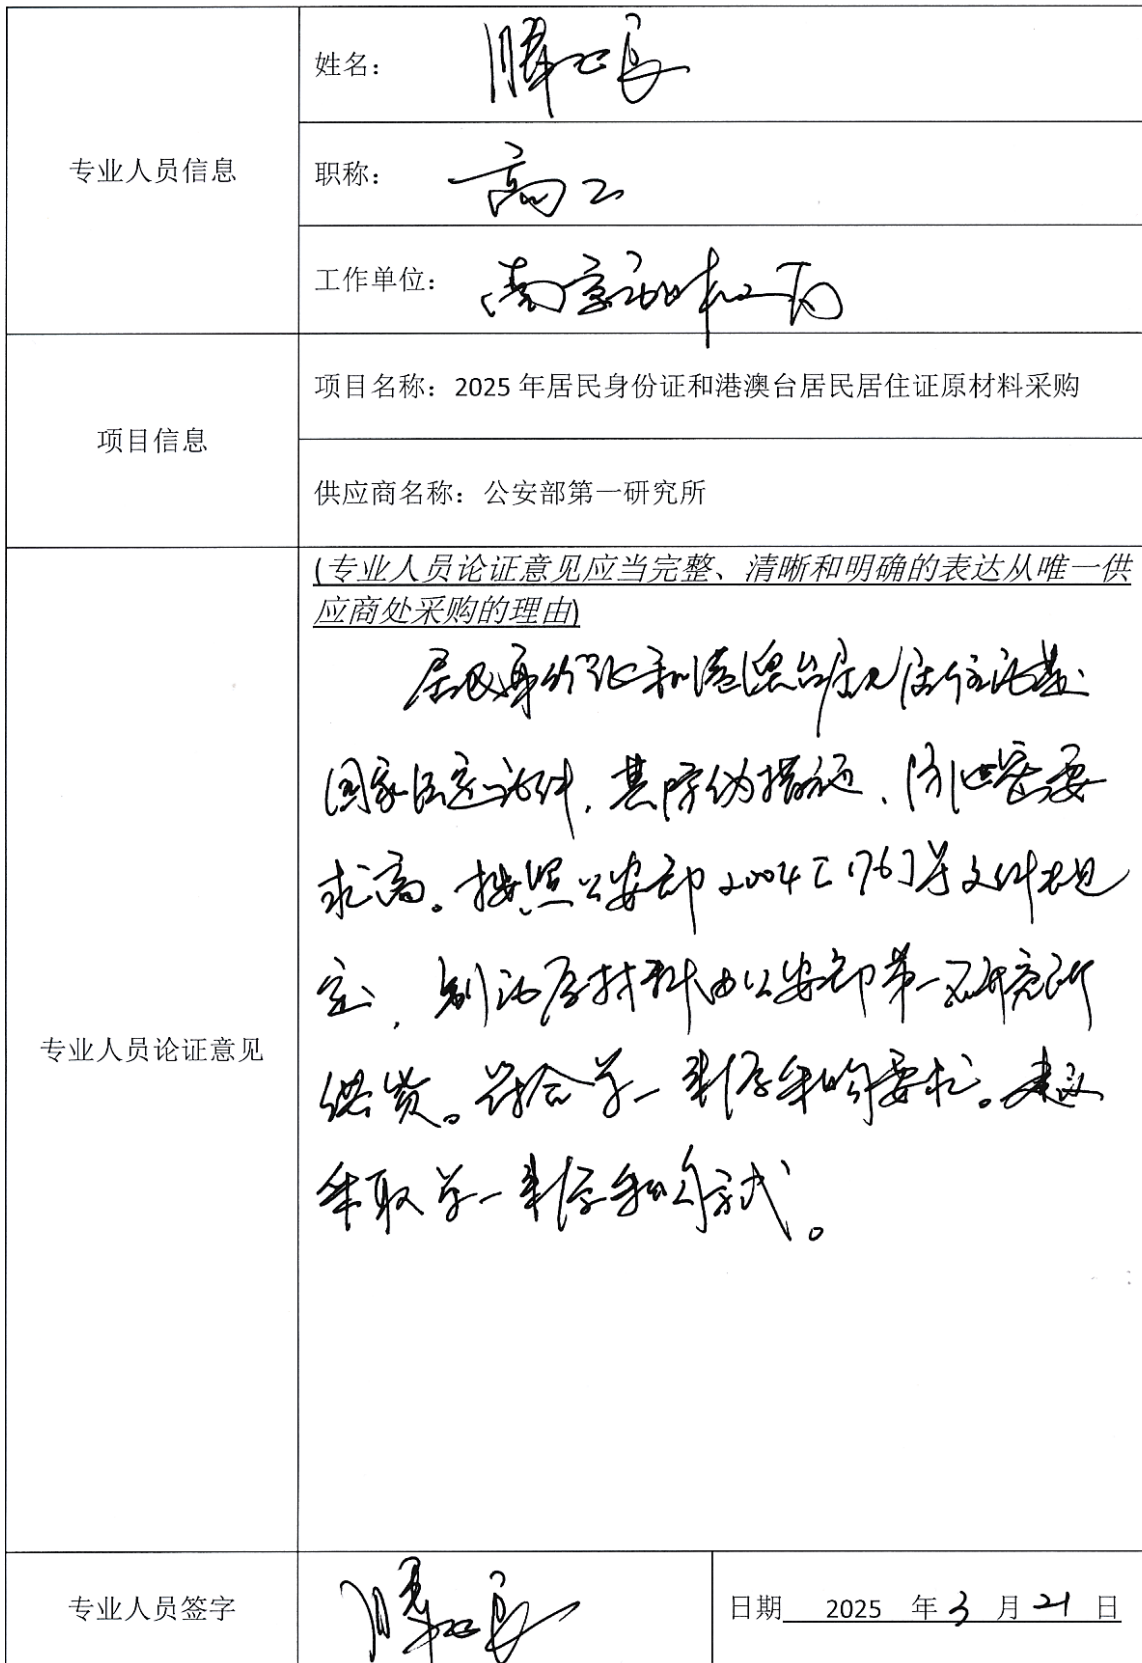 专业人员信息
姓名：
职称： 高工
工作单位： 南京
项目信息
项目名称：2025 年居民身份证和港澳台居民居住证原材料采购
供应商名称：公安部第一研究所
专业人员论证意见
(专业人员论证意见应当完整、清晰和明确的表达从唯一供
应商处采购的理由)
居民身份证和港澳台居民居住证是
国家法定证件，其防伪措施、防泄密要
求高。按照公安部2004［176］号文件规
定，制证原材料由公安部第一研究所
供货。符合单一来源采购要求。建议
采取单一来源采购方式。
专业人员签字
日期 2025 年 3 月 21 日